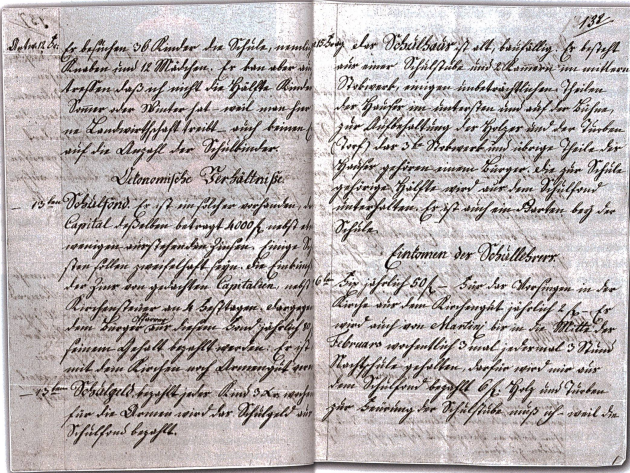 Antw. 12 Fr. Es besuchen 36 Kinder die Schule, nemlich
Knaben und 12 Mädchen. Es kan aber an-
daß ich nicht die Hälfte Kinder
Somer oder Winter hat – weil man hier
ne Landwirthschaft treibt – auch keinen
auf die Anzahl der Schulkinder.
Oekonomische Verhältniße.
– 13ten Schulfond. Es ist ein solcher vorhanden, das
Capital deßelben betragt 4000 f. nebst
wenigen ausstehenden Zinsen. Einige
sten sollen zweifelhaft seyn. Die Einkünfte
der Zins von gedachten Capitalien, nebst
Kirchensteuer an 4 Festtagen. Dargegen
dem Bürger Pfarrer aus diesem Fond jährlich
seinem Gehalt bezahlt werden. Er ist
mit dem Kirchen noch Armengut ver
– 13ten Schulgeld bezahlt jedes Kind 3 xr. woche
für die Armen wird das Schulgeld aus
Schulfond bezahlt.
132
15 Frag Das Schulhaus ist alt, baufällig. Es besteht
aus einer Schulstube und 2 Kamern im mittern
Stokwerk, einigen unbeträchtlichen Theilen
des Hauses im untersten und auf der Bühne,
zur Aufbehaltung des Holzes und der Turben
(Torf) das 3te Stokwerk und übrige Theile des
Hauses gehören einem Bürger. Die zur Schule
gehörige Hälfte wird aus dem Schulfond
unterhalten. Es ist auch ein Garten bey der
Schule.
Einkomen des Schullehrers.
16te Fix jährlich 50 f – Für das Vorsingen in der
Kirche aus dem Kirchengut jährlich 2 f. – Es
wird auch von Martini bis in die Mitte des
Februars wochentlich 3 mal jedesmal 3 Stund
Nachtschule gehalten, darfür wird mir aus
dem Schulfond bezahlt 6 f. Holz und Turben
zur Heizung der Schulstube muß ich – weil die